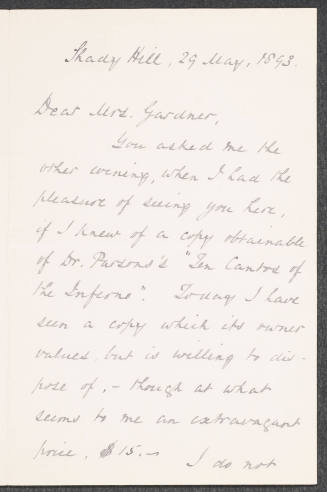 Shady Hill, 29 May, 1893.
Dear Mrs. Gardner,
You asked me the
other evening, when I had the
pleasure of seeing you here,
if I knew of a copy obtainable
of Dr. Parsons's "Ten Cantos of
the Inferno". Today I have
seen a copy which its owner
values, but is willing to dis-
pose of, - though at what
seems to me an extravagant
price, $15.-
I do not